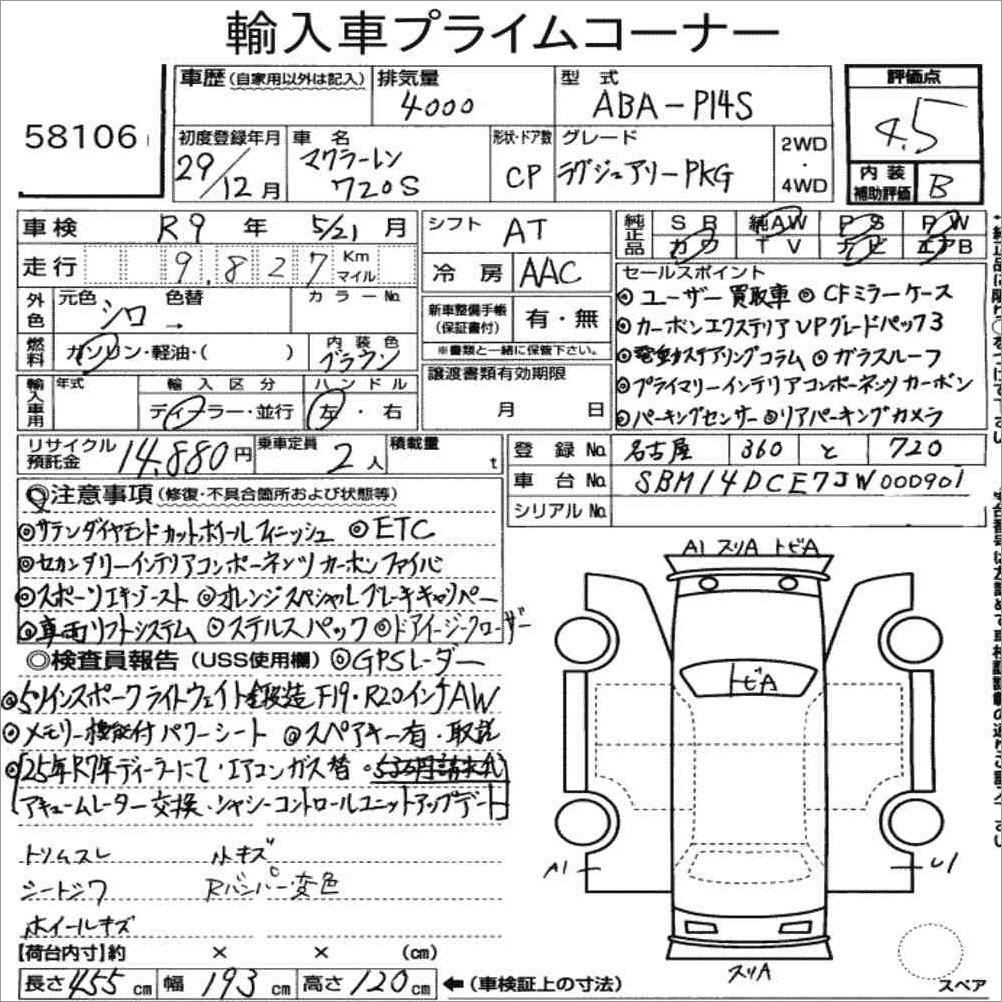 輸入車プライムコーナー
58106
車歴 (自家用以外は記入) 排気量 4000 型式 ABA-P14S 評価点 4.5
初度登録年月 29/12月 車名 マクラーレン 720S 形状・ドア数 CP グレード ラグジュアリーPKG 2WD・4WD 内装補助評価 B
車検 R9年 5/21月 シフト AT 純正品 SR 純AW PS PW
走行 9,827 Km マイル 冷房 AAC カワ TV ナビ エアB
外色 元色 シロ → 色替 カラーNo. 新車整備手帳 (保証書付) 有・無
※書類と一緒に保管下さい。
燃料 ガソリン・軽油・( ) 内装色 ブラウン
輸入車用 年式 輸入区分 ディーラー・並行 ハンドル 左・右 譲渡書類有効期限 月 日
リサイクル預託金 14,880円 乗車定員 2人 積載量 t
セールスポイント
◎ユーザー買取車 ◎CFミラーケース
◎カーボンエクステリアUPグレードパック3
◎電動ステアリングコラム ◎ガラスルーフ
◎プライマリーインテリアコンポーネンツカーボン
◎パーキングセンサー◎リアパーキングカメラ
登録No. 名古屋 360 と 720
車台No. SBM14DCE7JW000901
シリアルNo.
◎注意事項 (修復・不具合箇所および状態等)
◎サテンダイヤモンドカットホイールフィニッシュ ◎ETC
◎セカンダリーインテリアコンポーネンツカーボンファイバ
◎スポーツエキゾースト ◎オレンジスペシャルブレーキキャリパー
◎車両リフトシステム ◎ステルスパック ◎ドアイージークローザー
◎検査員報告 (USS使用欄) ◎GPSレーダー
◎5ツインスポークライトウェイト鍛造 F19・R20インチAW
◎メモリー機能付パワーシート ◎スペアキー有・取説
◎(25年R7年ディーラーにて・エアコンガス替・
アキュームレーター交換・シャシーコントロールユニットアップデート
トリムスレ 小キズ
シートシワ Rバンパー変色
ホイールキズ
【荷台内寸】約 × × (cm)
長さ455cm 幅193cm 高さ120cm ←(車検証上の寸法)
A1 スリA トビA
トビA
A1
U1
スリA
スペア